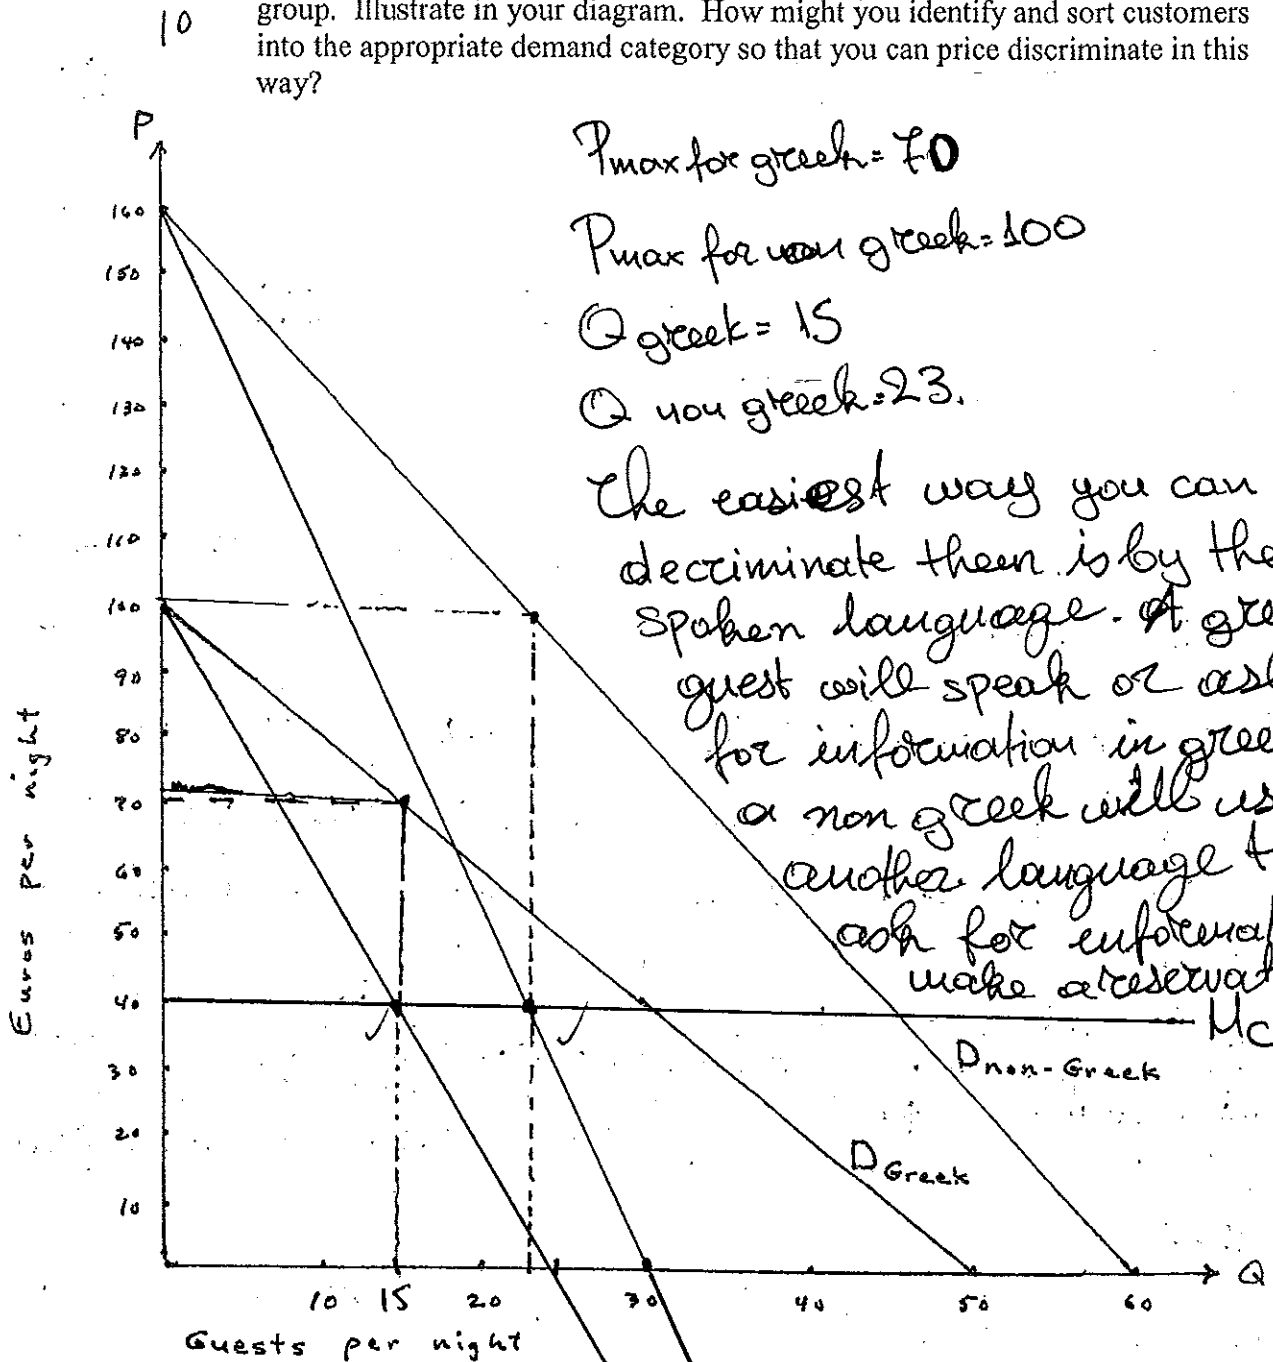 10
group. Illustrate in your diagram. How might you identify and sort customers
into the appropriate demand category so that you can price discriminate in this
way?
P
Pmax for greek = 70
Pmax for non greek = 100
Q greek = 15
Q non greek = 23.
The easiest way you can
decriminate them is by the
spoken language. A gre
guest will speak or as
for information in gree
a non greek will us
another language t
ask for enforma
make a reservat
160
150
140
130
120
110
100
90
80
70
60
50
40
30
20
10
Euros per night
Mc
D non-Greek
D Greek
Q
10 15 20 30 40 50 60
Guests per night